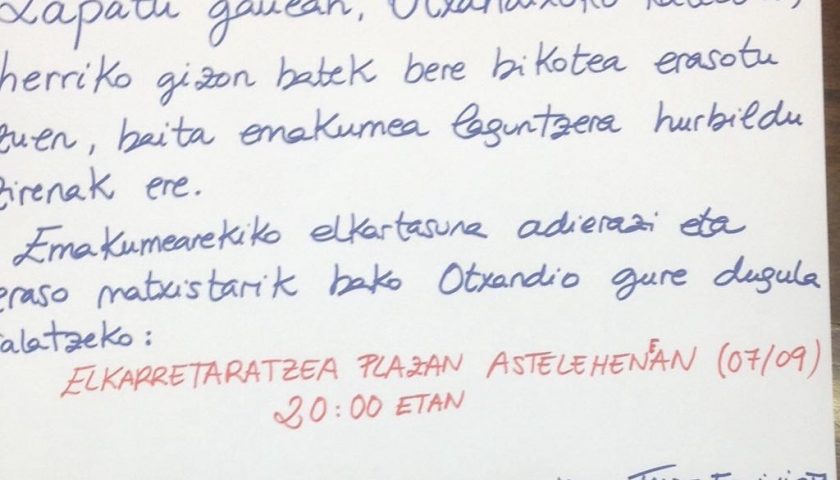 Zapatu gauean, Otxandixoko
herriko gizon batek bere bikotea erasotu
zuen, baita emakumea laguntzera hurbildu
zirenak ere.
Emakumearekiko elkartasuna adierazi eta
eraso matxistarik bako Otxandio gure dugula
salatzeko:
ELKARRETARATZEA PLAZAN ASTELEHENEAN (07/09)
20:00 ETAN